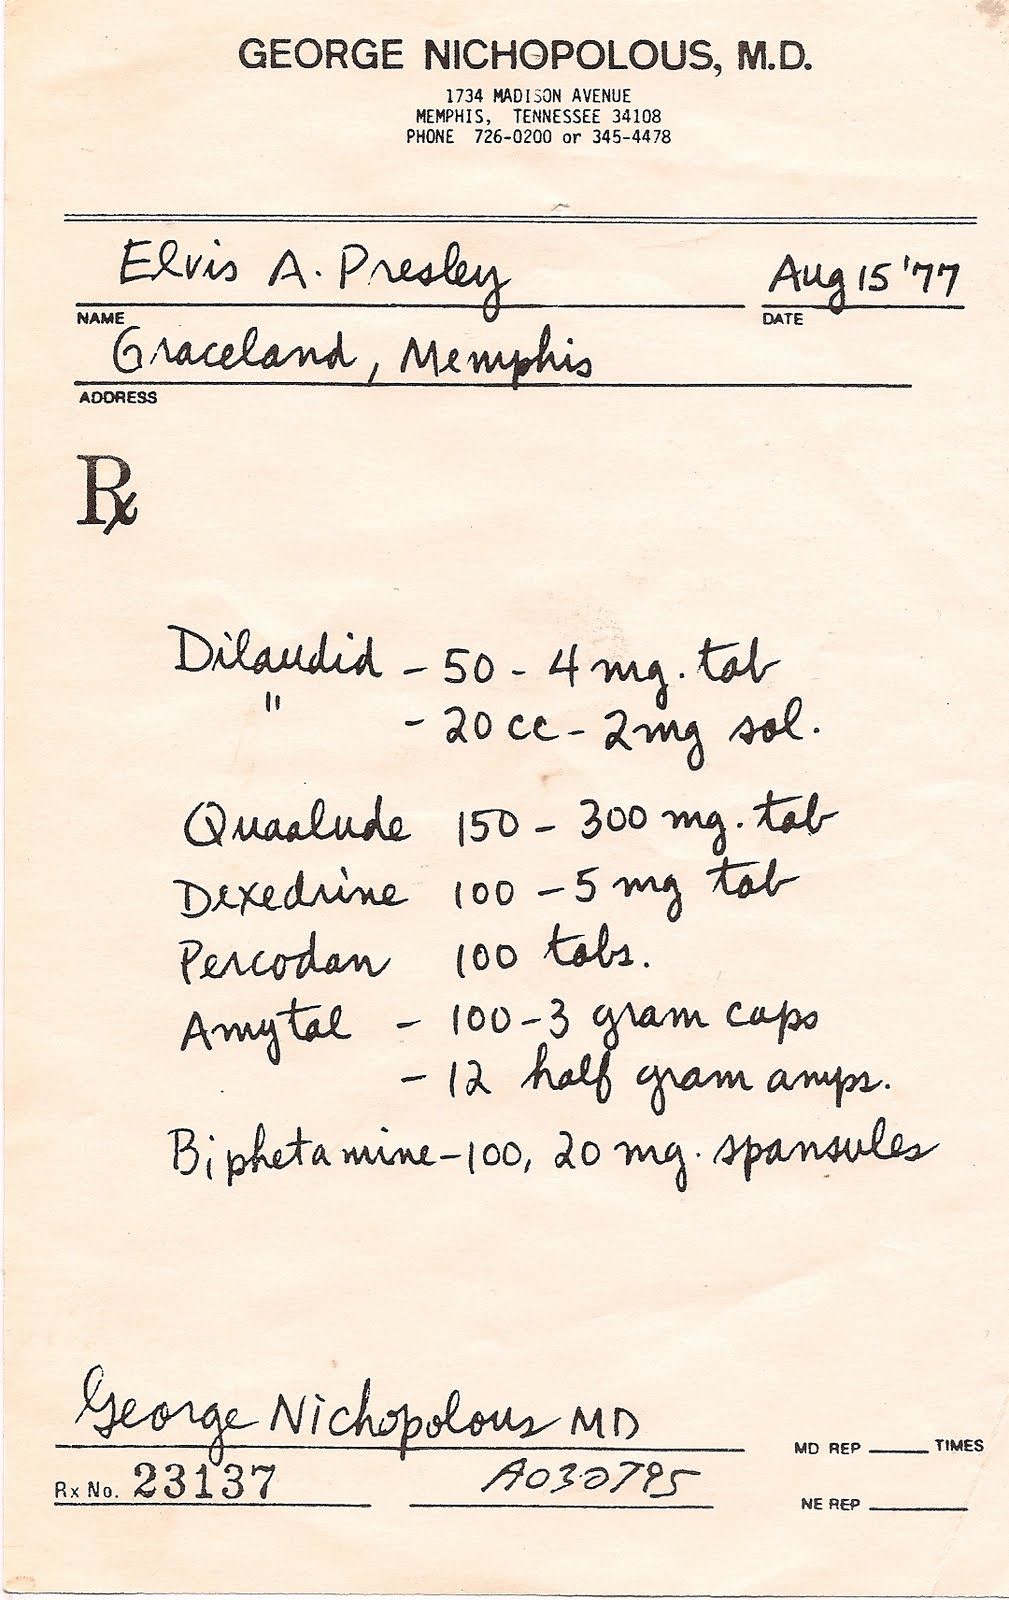 GEORGE NICHOPOLOUS, M.D.
1734 MADISON AVENUE
MEMPHIS, TENNESSEE 34108
PHONE 726-0200 or 345-4478
Elvis A. Presley Aug 15 '77
NAME DATE
Graceland, Memphis
ADDRESS
Rx
Dilaudid - 50 - 4 mg. tab
" - 20 cc - 2 mg sol.
Quaalude 150 - 300 mg. tab
Dexedrine 100 - 5 mg tab
Percodan 100 tabs.
Amytal - 100 - 3 gram caps
- 12 half gram amps.
Biphetamine - 100, 20 mg. spansules
George Nichopolous MD
MD REP ____ TIMES
Rx No. 23137 A030795
NE REP ____